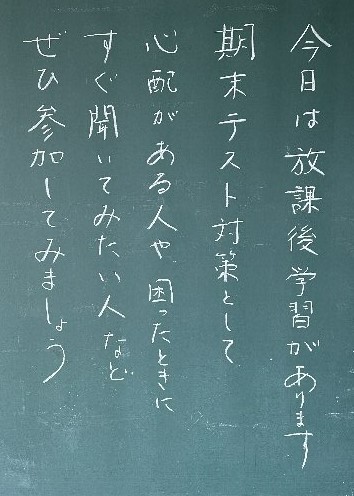 今日は放課後学習があります
期末テスト対策として
心配がある人や困ったときに
すぐ聞いてみたい人など
ぜひ参加してみましょう